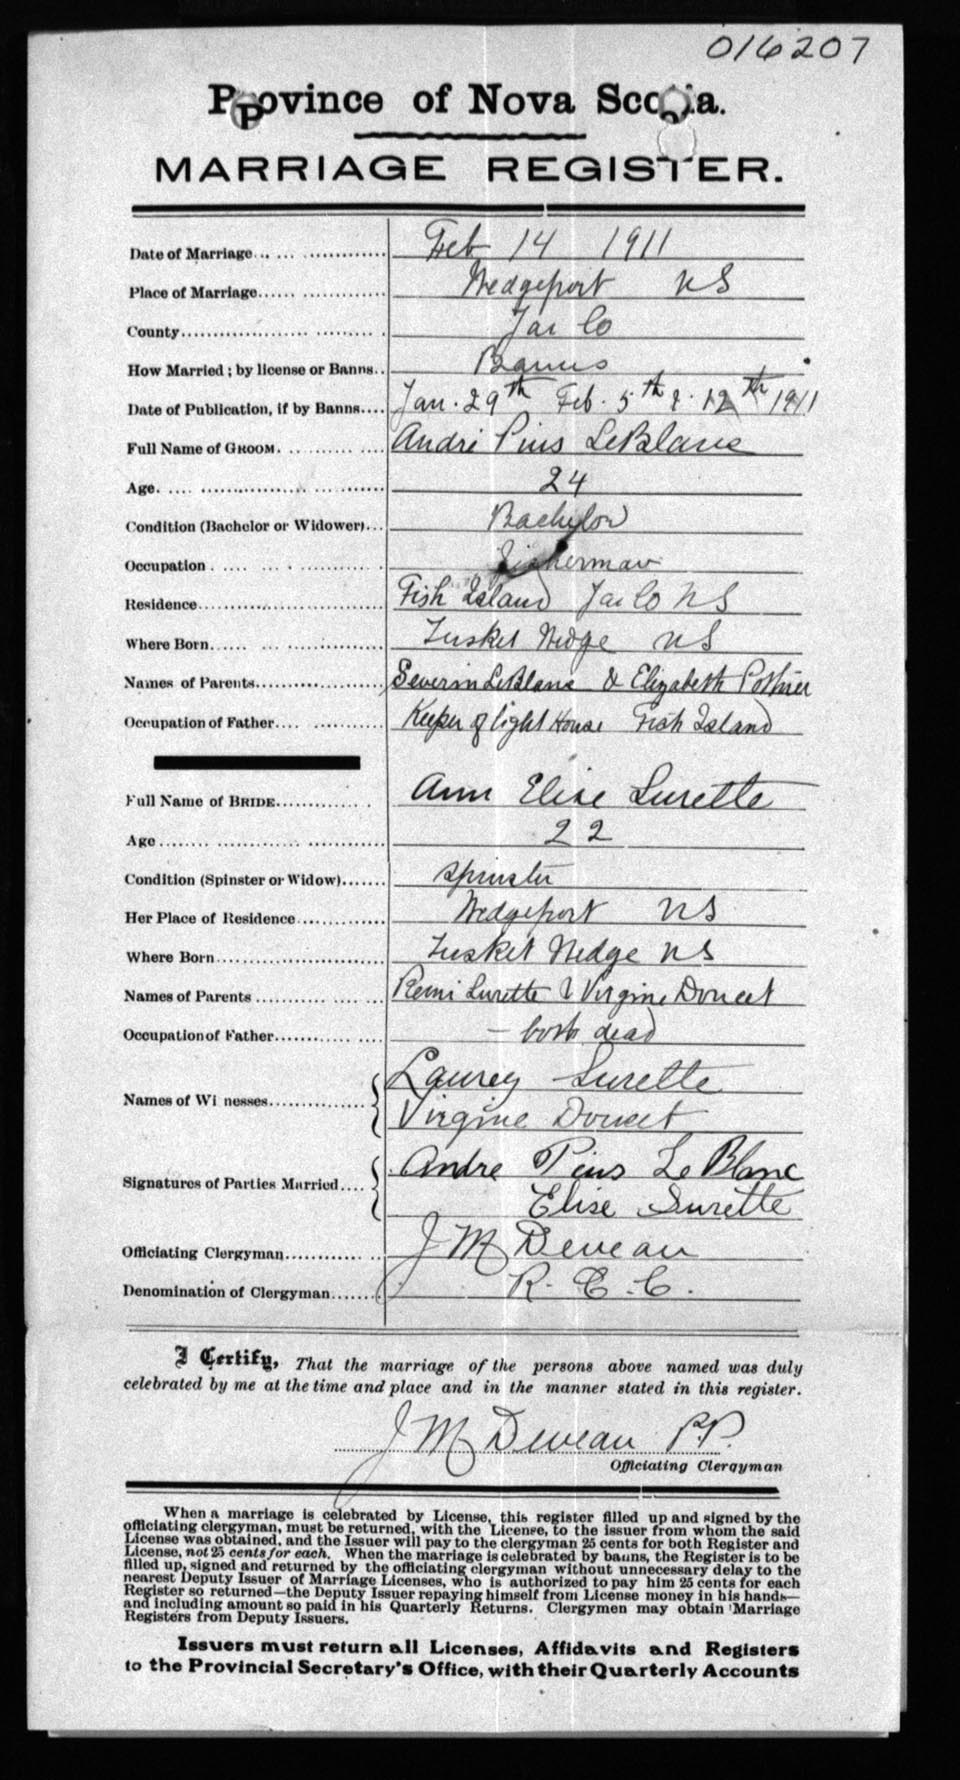 016207
Province of Nova Scotia.
MARRIAGE REGISTER.
Date of Marriage... Feb 14 1911
Place of Marriage... Wedgeport NS
County... Yar Co
How Married; by license or Banns.. Banns
Date of Publication, if by Banns.... Jan. 29th Feb. 5th & 12th 1911
Full Name of GROOM. André Pius LeBlanc
Age. 24
Condition (Bachelor or Widower)... Bachelor
Occupation Fisherman
Residence... Fish Island Yar Co NS
Where Born... Tusket Wedge NS
Names of Parents... Severin LeBlanc & Elizabeth Pothier
Occupation of Father... Keeper of light House Fish Island
Full Name of BRIDE... Ann Elise Surette
Age... 22
Condition (Spinster or Widow)... Spinster
Her Place of Residence... Wedgeport NS
Where Born... Tusket Wedge NS
Names of Parents... Remi Surette & Virgine Doucet
Occupation of Father... – both dead
Names of Wi nesses... Laurey Surette
Virgine Doucet
Signatures of Parties Married.... Andre Pius Le Blanc
Elise Surette
Officiating Clergyman... J M Deveau
Denomination of Clergyman... R. C. C.
I Certify, That the marriage of the persons above named was duly
celebrated by me at the time and place and in the manner stated in this register.
J M Deveau P.P.
Officiating Clergyman
When a marriage is celebrated by License, this register filled up and signed by the
officiating clergyman, must be returned, with the License, to the issuer from whom the said
License was obtained, and the Issuer will pay to the clergyman 25 cents for both Register and
License, not 25 cents for each. When the marriage is celebrated by banns, the Register is to be
filled up, signed and returned by the officiating clergyman without unnecessary delay to the
nearest Deputy Issuer of Marriage Licenses, who is authorized to pay him 25 cents for each
Register so returned—the Deputy Issuer repaying himself from License money in his hands—
and including amount so paid in his Quarterly Returns. Clergymen may obtain Marriage
Registers from Deputy Issuers.
Issuers must return all Licenses, Affidavits and Registers
to the Provincial Secretary's Office, with their Quarterly Accounts